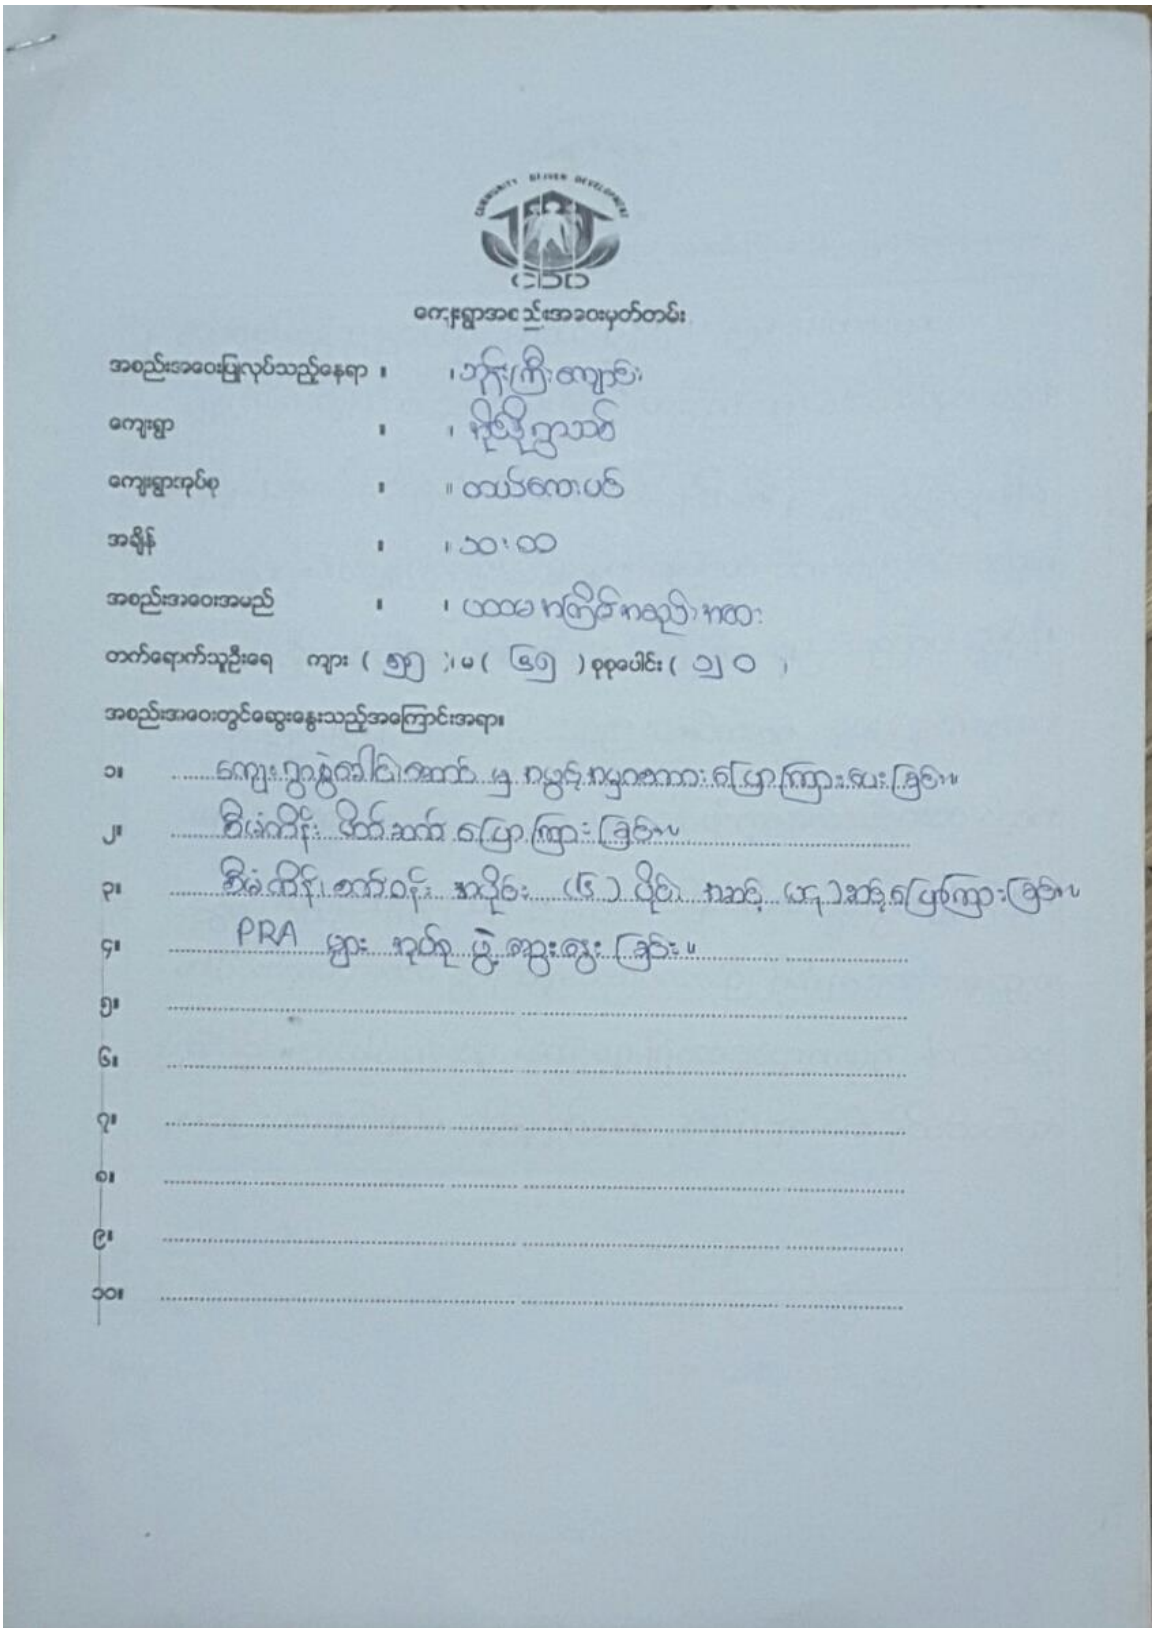 COMMUNITY DRIVEN DEVELOPMENT
CDD
ကျေးရွာအစည်းအဝေးမှတ်တမ်း
အစည်းအဝေးပြုလုပ်သည့်နေရာ ။ ၊ ဘုန်းကြီးကျောင်း
ကျေးရွာ ။ ၊ ရွာသစ်
ကျေးရွာအုပ်စု ။ ။
အချိန် ။ ၊ ၁၀:၀၀
အစည်းအဝေးအမည် ။ ၊ ပထမအကြိမ်အစည်းအဝေး
တက်ရောက်သူဦးရေ ကျား ( ၅၅ )၊ မ ( ၆၅ ) စုစုပေါင်း ( ၁၂၀ )
အစည်းအဝေးတွင်ဆွေးနွေးသည့်အကြောင်းအရာ။
၁။ ကျေးရွာ ခေါင်းဆောင် မှ အဖွင့်အမှာစကားပြောကြားပေးခြင်း။
၂။ စီမံကိန်း မိတ်ဆက် ပြောကြားခြင်း။
၃။ စီမံကိန်း စက်ဝန်း အပိုင်း (၆) ပိုင်း၊ အဆင့် ဆင့်ပြောကြားခြင်း။
၄။ PRA များ အုပ်စု ဖွဲ့ ဆွေးနွေးခြင်း။
၅။
၆။
၇။
၈။
၉။
၁၀။